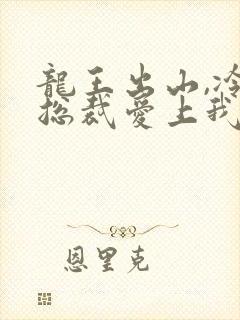 龍王出山,冷
總裁愛上我
恩里克